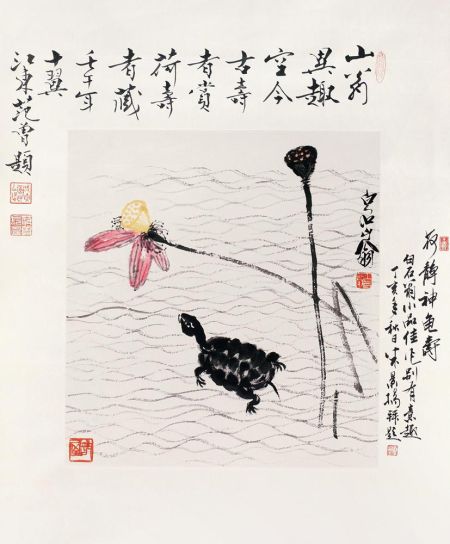 山翁
異趣
空今
古壽
者賞
荷壽
者藏
壬午年
十翼
江東范曾題
白石山翁
荷靜神龜壽
白石翁小品佳作別有意趣
丁亥年秋日